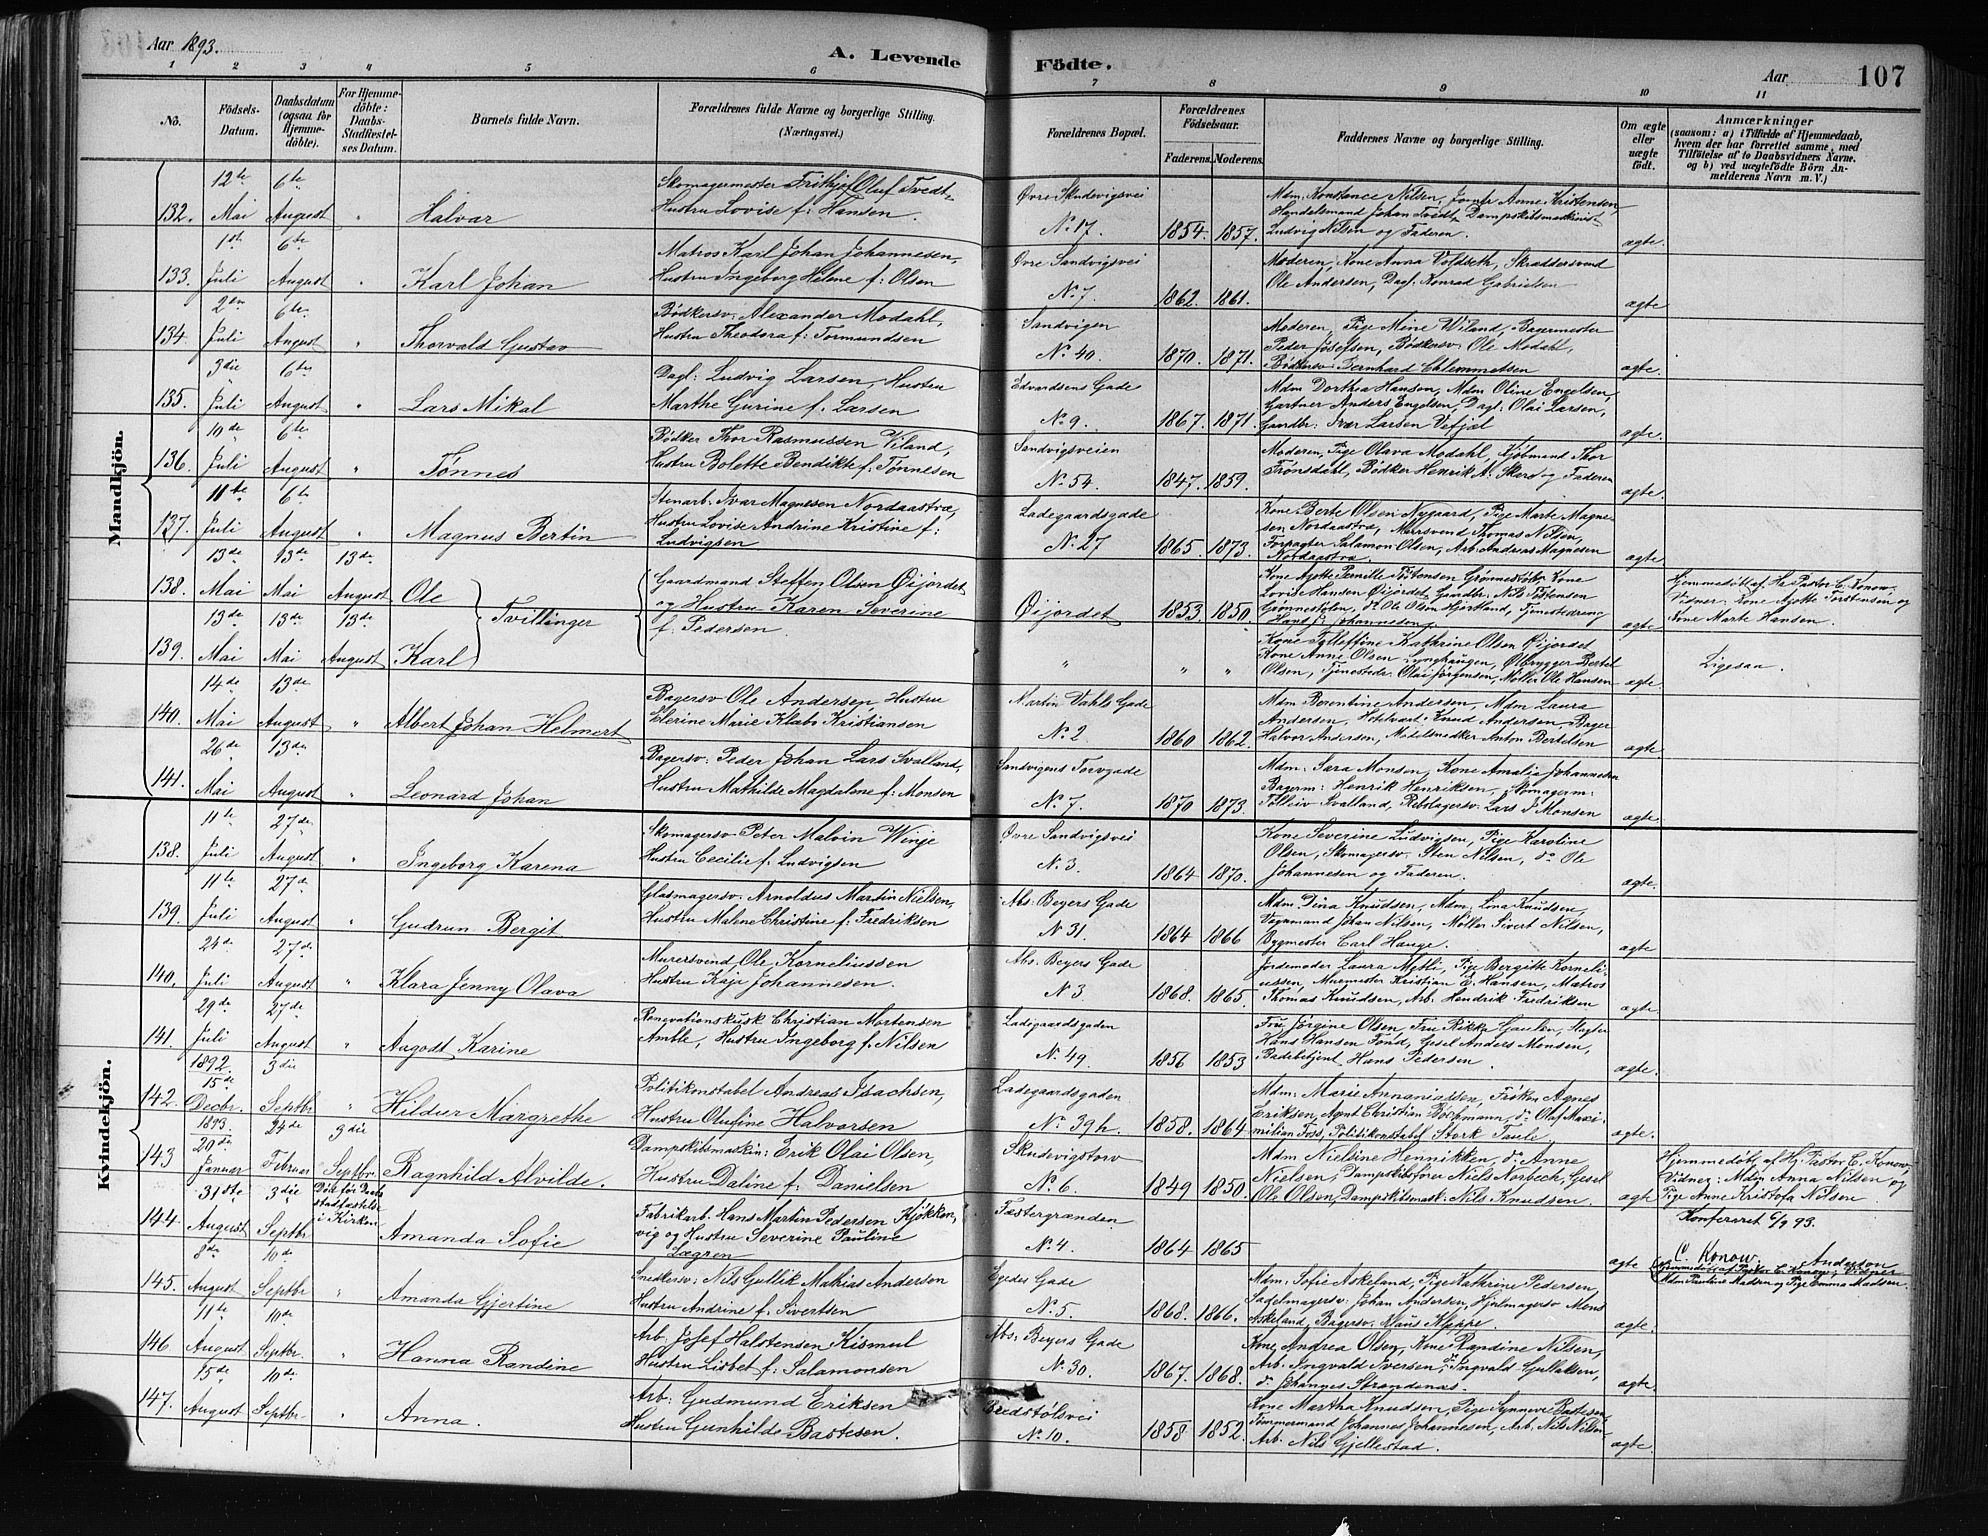 Aar 1893.
A. Levende Födte.
Aar
107
1 2 3 4 5 6 7 8 9 10 11
No.
Födsels-Datum.
Daabsdatum (ogsaa for Hjemme-döbte).
For Hjemme-döbte: Daabs-Stadfæstel-ses Datum.
Barnets fulde Navn.
Forældrenes fulde Navne og borgerlige Stilling. (Næringsvei.)
Forældrenes Bopæl.
Forældrenes Födselsaar.
Faderens. Moderens.
Faddernes Navne og borgerlige Stilling.
Om ægte eller uægte födt.
Anmærkninger
(saasom: a) i Tilfælde af Hjemmedaab,
hvem der har forrettet samme, med
Tilföielse af to Daabsvidners Navne.
og b) ved uægtefödte Börn An-
melderens Navn m. V.)
Mandkjön.
132. 12te Mai 6te August " Halvar
Skomagermester Frithjof Oluf Tvedt,
Hustru Lovise f: Hansen.
Øvre Skudevigsvei No 17. 1854. 1857.
Mdm: Konstance Nilsen, Jomfr Anne Kristensen,
Handelsmand Johan Tvedt, Dampskibsmaskinist
Ludvig Nilsen og Faderen. ægte.
133. 1ste Juli 6te August " Karl Johan
Matros Karl Johan Johannesen,
Hustru Ingeborg Helene f: Olsen
Øvre Sandvigsvei No 7. 1862. 1861.
Moderen, Kone Anna Voldseth, Skræddersvend
Ole Andersen, Dagl: Konrad Gabrielsen ægte
134. 2den Juli 6te August " Thorvald Gustav
Bødkersv. Alexander Modahl,
Hustru Theodora f: Tormundsen
Sandvigen No 40. 1870. 1871.
Moderen, Pige Mine Wiland, Bagermester
Peder Josefsen, Bødkersv: Ole Modahl,
Bødkersv Bernhard Clemmetsen ægte.
135. 3die Juli 6te August " Lars Mikal
Dagl: Ludvig Larsen, Hustru
Marthe Gurine f: Larsen
Edvardsens Gade No 9. 1867. 1871.
Mdm Dorthea Hansen, Mdm Oline Engelsen,
Gartner Anders Engelsen, Dagl: Olai Larsen,
Gaardbr: Ivar Larsen ægte.
136. 10de Juli 6te August " Tønnes
Bødker Thor Rasmussen Viland,
Hustru Bolette Bendikte f: Tønnesen
Sandvigsveien No 54. 1847. 1859.
Moderen, Pige Olava Modahl, Kjøbmand Thor
Tronsdahl, Bødker Henrik A. Skard og Faderen ægte.
137. 11te Juli 6te August " Magnus Bertin
Stenarb. Ivar Magnesen Nordaastræ,
Hustru Lovise Andrine Kristine f:
Ludvigsen
Ladegaardsgade No 27 1865. 1873.
Kone Berte Olsen Nygaard, Pige Marte Magne-
sen Nordaastræ, Murrsvend Thomas Nilsen,
Forpagter Salamon Olsen, Arb. Andreas Magnesen
Nordaastræ. ægte
138. 13de Mai 13de Mai 13de August Ole
139. 13de Mai 13de Mai 13de August Karl
Tvillinger
Gaardmand Steffen Olsen Øijordet
og Hustru Karen Severine
f. Pedersen.
Øijordet 1853. 1850.
Kone Agotte Pernille Grønnestølen Kone
Lovise Hansen Øijordet Gaardbr: Nils
Grønnestølen, do Ole Olsen Hjortland, Tjenestedreng
Hans J. Johannesen ægte
Hjemmedøbt af Hr Pastor C. Konow.
Vidner: Kone Agotte Torstensen og
Kone Marte Hansen.
" " "
Kone Katharine Olsen Øijordet
Kone Anne Olsen Lynghaugen, Ølbrygger Bertel
Olsen, Tjenestedr: Olai Jørgensen, Møller Ole Hansen ægte. Ligesaa.
140. 14de Mai 13de August " Albert Johan Helmert
Bagersv Ole Andersen, Hustru
Elerine Marie Klabo Kristiansen
Martin Vahls Gade No 2 1860 1862.
Mdm Berentine Andersen, Mdm Laura
Andersen, Hotelvært Knud Andersen, Bager
Halvor Andersen, Modelsnedker Anton Bertelsen ægte.
141. 26de Mai 13de August " Leonard Johan
Bagersv: Peder Johan Lars Svalland,
Hustru Mathilde Magdalene f: Monsen
Sandvigens Torvgade No 7. 1870 1873.
Mdm: Sara Monsen, Kone Amalia Johannesen
Bagerm: Henrik Henriksen, Skomagerm:
Tolleiv Svalland, Rebslagersv: Lars J Monsen ægte.
Kvindekjön.
138. 11te Juli 27de August " Ingeborg Karena
Skomagersv. Peter Malvin Winje
Hustru Cecilie f. Ludvigsen
Øvre Sandvigsvei No 3. 1864 1870.
Kone Severine Ludvigsen, Pige Karoline
Olsen, Skomagersv. Sten Nilsen, do Ole
Johannesen og Faderen. ægte.
139. 11te Juli 27de August " Gudrun Bergit
Glasmagersv. Arnoldus Martin Nielsen,
Hustru Malene Christine f: Fredriksen
Abs: Beyers Gade No 31. 1864 1866
Mdm: Dina Knudsen, Mdm. Lona Knudsen,
Vognmand Johan Nilsen, Møller Sivert Nilsen,
Bygmester Carl Hauge. ægte
140. 24de Juli 27de August " Klara Jenny Olava
Murersvend Ole Korneliussen
Hustru Kaja Johannesen.
Abs. Beyers Gade No 3. 1868. 1865.
Jordemoder Laura Mytli, Pige Bergitte Korneli-
ussen, Murmester Kristian E. Hansen, Matros
Thomas Knudsen, Arb. Hendrik Fredriksen ægte.
141. 29de Juli 27de August " Aagodt Karine
Renovationskusk Christian Mortensen
Amble, Hustru Ingeborg f. Nilsen
Ladegaardsgaden No 49. 1856 1853
Fru Jørgine Olsen, Fru Rikka Gaulen, Slagter
Hans Hansen Fond, Gesel Anders Monsen,
Badebetjent Hans Pedersen. ægte.
142. 1892 15de Decbr. 3die Septbr " Hildur Margrethe
Politikonstabel Andreas Isachsen,
Hustru Olufine Halvorsen
Ladegaardsgaden No 39h. 1858. 1864
Mdm: Marie Annaniassen, Frøken Agnes
Eriksen, Agent Christian Børkmann, do Olaf Maxi-
milian Foss, Politikonstabel Stork Taule. ægte.
143 1893. 20de Januar 24de Februar 3die Septbr. Ragnhild Alvilde.
Dampskibsmaskin: Erik Olai Olsen,
Hustru Daline f: Danielsen
Skudevigstorv No 6. 1849 1850.
Mdm Nielsine Hennikken, do Anne
Nielsen, Dampskibsfører Niels Norbech, Gesel
Ole Olsen, Dampskibsmask: Nils Knudsen. ægte
Hjemmedøbt af Hr. Pastor C. Konow,
Vidner: Mdm Anna Nilsen og
Pige Anne Kristofa Nilsen.
144. 31ste August 3die Septbr Død før Daabs stadfæstelse i Kirken Amanda Sofie
Fabrikarb. Hans Martin Pedersen Kjøkken-
vig og Hustru Severine Pauline
Lægren
Fæstergrænden No 4. 1864 1865 ægte
Konfereret 6/9 93.
C. Konow.
145. 8de August 10de Septbr " Amanda Gjertine
Snedkersv: Nils Gullik Mathias Andersen
Hustru Andrine f. Sivertsen
Egedes Gade No 5. 1868. 1866.
Mdm: Sofie Askeland, Pige Katherine Pedersen,
Sadelmagersv: Johan Andersen, Hjulmagersv Mons
Askeland, Bagersv. Klaus Kleppe. ægte.
Hjemmedøbt af Pastor C. Konow, Vidner
Mdm Pauline Madsen og Pige Emma Madsen.
146. 11te August 10de Septbr. " Hanna Randine
Arb. Josef Halstensen Kismul
Hustru Lisbet f: Salamonsen
Abs: Beyers Gade No 30. 1867. 1868.
Kone Andrea Olsen, Kone Randine Nilsen,
Arb. Ingvald Iversen, do Ingvald Gjullaksen,
do Johannes Strandenæs. ægte.
147. 15de August 10de Septbr " Anna.
Arb: Gudmund Eriksen
Hustru Gunhilde Bastesen.
Bredstølsvei No 10. 1858 1852.
Kone Martha Knudsen, Pige Synneve Bastesen
Tømmermand Johannes Johannesen, Arb. Nils Nilsen
Arb. Nils Gjellestad. ægte.